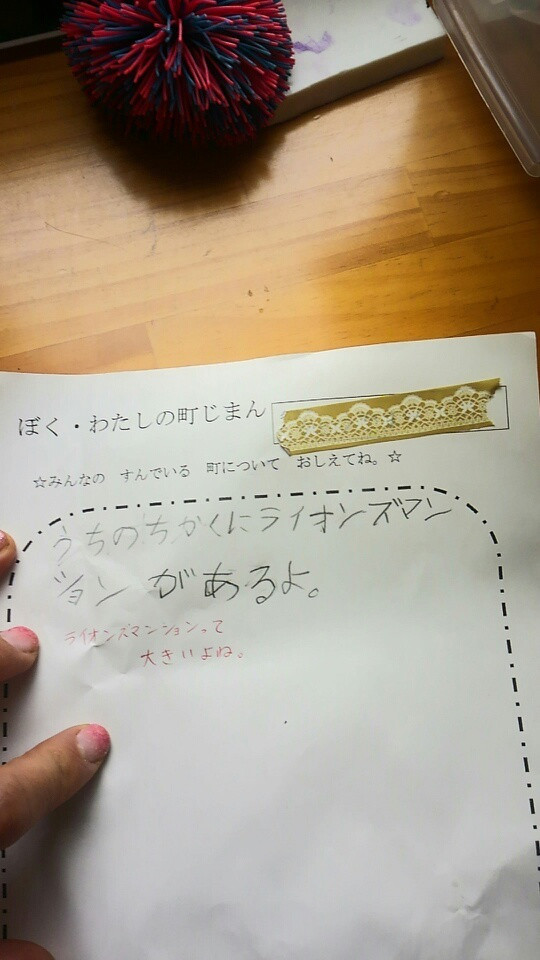 ぼく・わたしの町じまん
☆みんなの すんでいる 町について おしえてね。☆
うちのちかくにライオンズマン
ションがあるよ。
ライオンズマンションって
大きいよね。